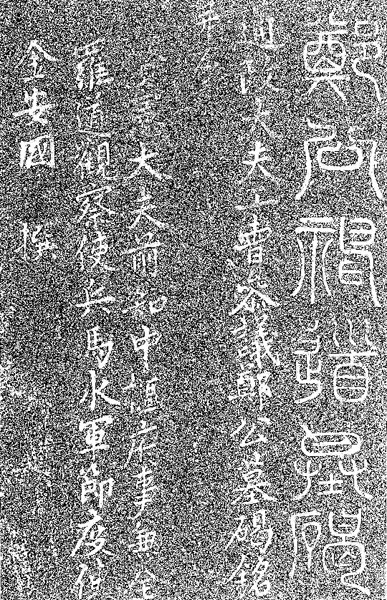 鄭公神道墓碣
通政大夫工曹參議鄭公墓碣銘
并序
憲大夫前知中樞府事兼全
羅道觀察使兵馬水軍節度使
金安國 撰